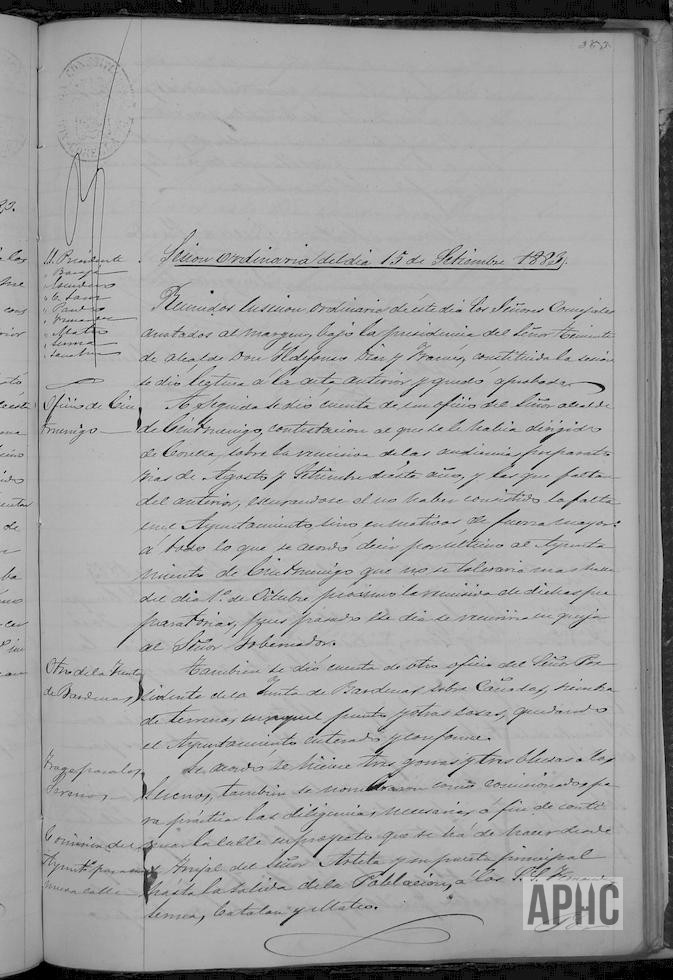 353
Sesion ordinaria del dia 15 de Setiembre 1883.
Sr. Presidente
" Sanz
" Mateo
Reunidos en sesion ordinaria de este dia los Señores Concejales
anotados al margen, bajo la presidencia del Señor teniente
de alcalde Don Ildefonso Diaz y constituida la sesion
se dió lectura á la acta anterior y quedó aprobada
Oficio de Cin-
truenigo
A seguida se dió cuenta de un oficio del Señor alcalde
de Cintruenigo, contestacion al que se le habia dirigido
de Corella, sobre la remision de las
de Agosto y Setiembre de este año, y las que faltan
del anterior, escusandose el no haber consistido la falta
en el Ayuntamiento sino en motivos de fuerza mayor:
á todo lo que se acordó decir por último al Ayunta
miento de Cintruenigo que no se toleraria mas
del dia 1º de Octubre próximo la remision de dichas pre
paratorias, pues pasado ese dia se en queja
al Señor Gobernador.
Otro de la Junta
de Bardenas,
Tambien se dió cuenta de otro oficio del Señor Pre
sidente de la Junta de Bardenas sobre Cañadas, siembra
de terrenos en aquel punto y otras cosas, quedando
el Ayuntamiento enterado y conforme.
Trage para los
Serenos,
Se acordó se hiciese tres gorras y tres blusas a los
Serenos, tambien se nombraron como comisionados pa
ra practicar las diligencias necesarias á fin de
la calle en proyecto que se há de hacer desde
Comision de
Ayuntº para
nueva calle
el del Señor Arteta y su puerta principal
hasta la salida de la Poblacion, á los
Catalan y Mateo.
APHC